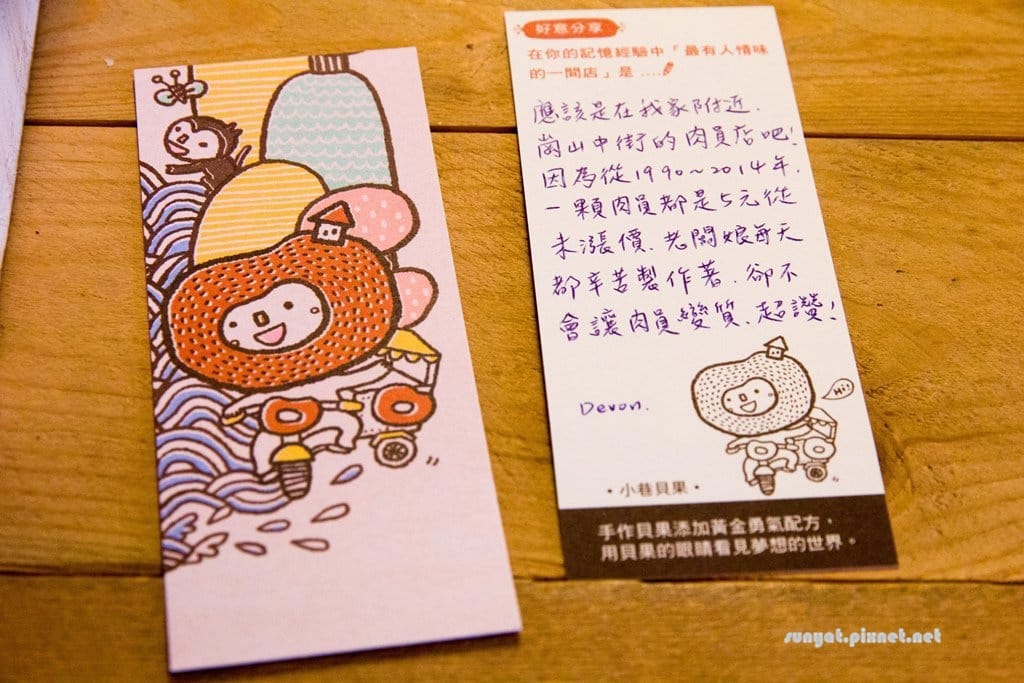 好意分享
在你的記憶經驗中「最有人情味
的一間店」是 ....
應該是在我家附近.
崗山中街的肉員店吧!
因為從1990~2014年.
一顆肉員都是5元從
未漲價.老闆娘每天
都辛苦製作著.卻不
會讓肉員變質.超讚!
Devon.
Hi!
•小巷貝果•
手作貝果添加黃金勇氣配方，
用貝果的眼睛看見夢想的世界。
sunyat.pixnet.net